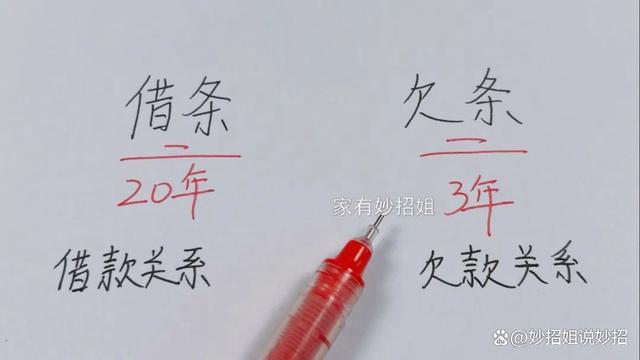 借条 欠条
20年 3年
家有妙招姐
借款关系 欠款关系
@妙招姐说妙招